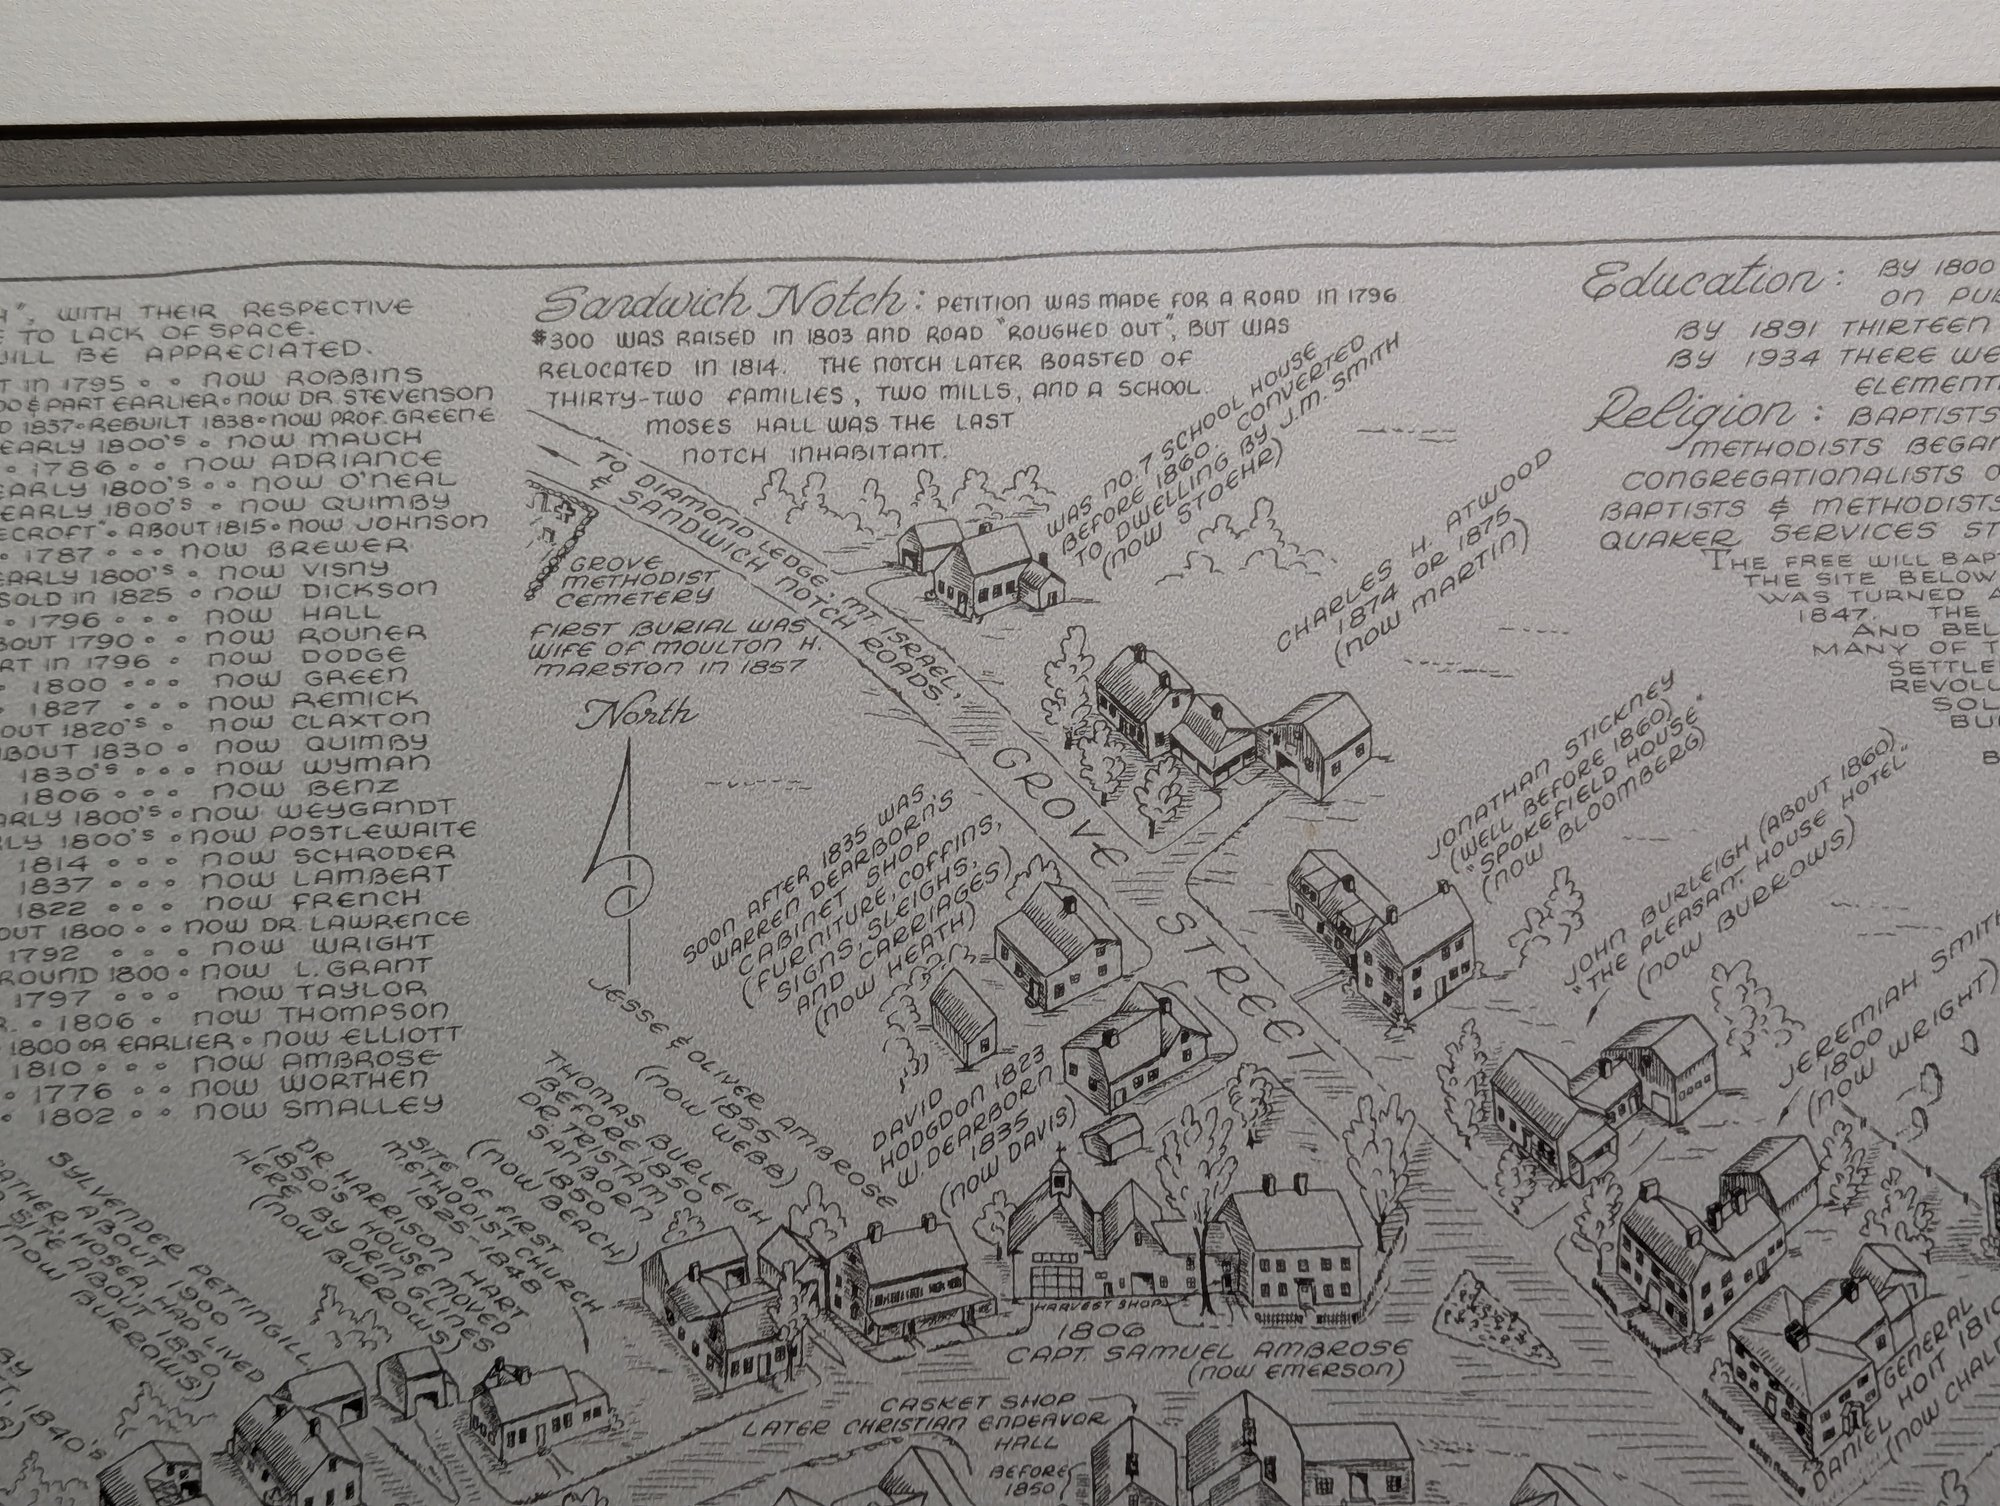 ", WITH THEIR RESPECTIVE
TO LACK OF SPACE.
WILL BE APPRECIATED.
IN 1795 • • NOW ROBBINS
& PART EARLIER • NOW DR. STEVENSON
1837 • REBUILT 1838 • NOW PROF. GREENE
EARLY 1800'S • NOW MAUCH
• 1786 • • NOW ADRIANCE
EARLY 1800'S • • NOW O'NEAL
EARLY 1800'S • NOW QUIMBY
ABOUT 1815 • NOW JOHNSON
• 1787 • • • NOW BREWER
EARLY 1800'S • NOW VISNY
SOLD IN 1825 • NOW DICKSON
• 1796 • • • NOW HALL
ABOUT 1790 • • NOW ROUNER
IN 1796 • NOW DODGE
1800 • • • NOW GREEN
• 1827 • • • NOW REMICK
1820'S • NOW CLAXTON
ABOUT 1830 • NOW QUIMBY
1830'S • • • NOW WYMAN
1806 • • • NOW BENZ
EARLY 1800'S • NOW WEYGANDT
1800'S • NOW POSTLEWAITE
1814 • • • NOW SCHRODER
1837 • • • NOW LAMBERT
1822 • • • NOW FRENCH
1800 • NOW DR. LAWRENCE
1792 • • • NOW WRIGHT
AROUND 1800 • NOW L. GRANT
1797 • • • NOW TAYLOR
• 1806 • NOW THOMPSON
1800 OR EARLIER • NOW ELLIOTT
1810 • • • NOW AMBROSE
• 1776 • • NOW WORTHEN
• 1802 • • NOW SMALLEY
Sandwich Notch: PETITION WAS MADE FOR A ROAD IN 1796
$300 WAS RAISED IN 1803 AND ROAD "ROUGHED OUT", BUT WAS
RELOCATED IN 1814. THE NOTCH LATER BOASTED OF
THIRTY-TWO FAMILIES, TWO MILLS, AND A SCHOOL.
MOSES HALL WAS THE LAST
NOTCH INHABITANT.
Education: BY 1800
ON
BY 1891 THIRTEEN
BY 1934 THERE
Religion: BAPTISTS
METHODISTS BEGAN
CONGREGATIONALISTS
BAPTISTS & METHODISTS
QUAKER SERVICES
THE FREE WILL
THE SITE BELOW
WAS TURNED
1847. THE
AND
MANY OF
TO DIAMOND LEDGE, MT. ISRAEL,
& SANDWICH NOTCH ROADS.
GROVE
METHODIST
CEMETERY
FIRST BURIAL WAS
WIFE OF MOULTON H.
MARSTON IN 1857
North
WAS NO. 7 SCHOOL HOUSE
BEFORE 1860. CONVERTED
TO DWELLING BY J.M. SMITH
(NOW STOEHR)
CHARLES H. ATWOOD
1874 OR 1875
(NOW MARTIN)
GROVE STREET
JONATHAN STICKNEY
(WELL BEFORE 1860)
"SPOKEFIELD HOUSE"
(NOW BLOOMBERG)
JOHN BURLEIGH (ABOUT 1860)
"THE PLEASANT HOUSE HOTEL"
(NOW BURROWS)
JEREMIAH SMITH
1800
(NOW WRIGHT)
SOON AFTER 1835 WAS
WARREN DEARBORN'S
CABINET SHOP
(FURNITURE, COFFINS,
SIGNS, SLEIGHS,
AND CARRIAGES)
(NOW HEATH)
DAVID
HODGDON 1823
W. DEARBORN
1835
(NOW DAVIS)
JESSE & OLIVER AMBROSE
1855
(NOW WEBB)
THOMAS BURLEIGH
BEFORE 1850
DR. TRISTAM
SANBORN
1850
(NOW BEACH)
SITE OF FIRST
METHODIST CHURCH
1825-1848
DR. HARRISON HART
1850'S HOUSE MOVED
HERE BY ORIN GLINES
(NOW BURROWS)
SYLVENDER PETTINGILL
ABOUT 1900
HOSEA, HAD LIVED
SITE ABOUT 1850
(NOW BURROWS)
1840'S
HARVEST SHOP
1806
CAPT. SAMUEL AMBROSE
(NOW EMERSON)
CASKET SHOP
LATER CHRISTIAN ENDEAVOR
HALL
BEFORE
1850
GENERAL
DANIEL HOIT 1810
(NOW